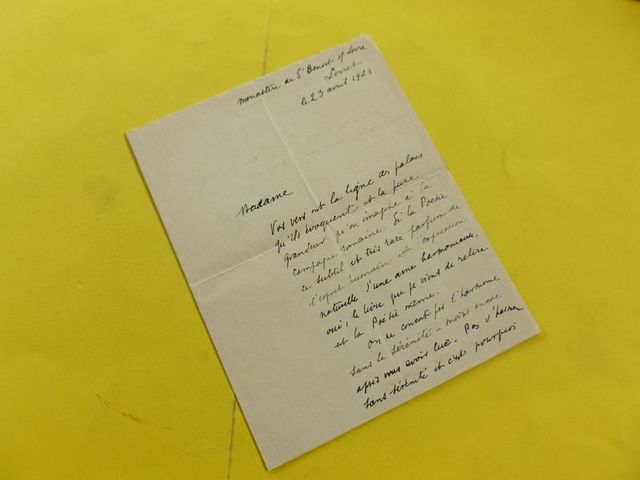 monastère de St Benoit s/ Loire
Loiret
le 23 avril 1923.
Madame
Vos vers ont la ligne des palais
qu'ils évoquent et la pure
grandeur qu'on imagine à la
campagne romaine. Si la Poésie
ce subtil et très rare parfum de
l'esprit humain est expression
naturelle d'une ame harmonieuse,
oui, le livre que je viens de relire
est la Poésie même.
On ne connait pas l'harmonie
sans la sérénité - moins encore
après vous avoir lue. Pas d'harmonie
sans sérénité et c'est pourquoi